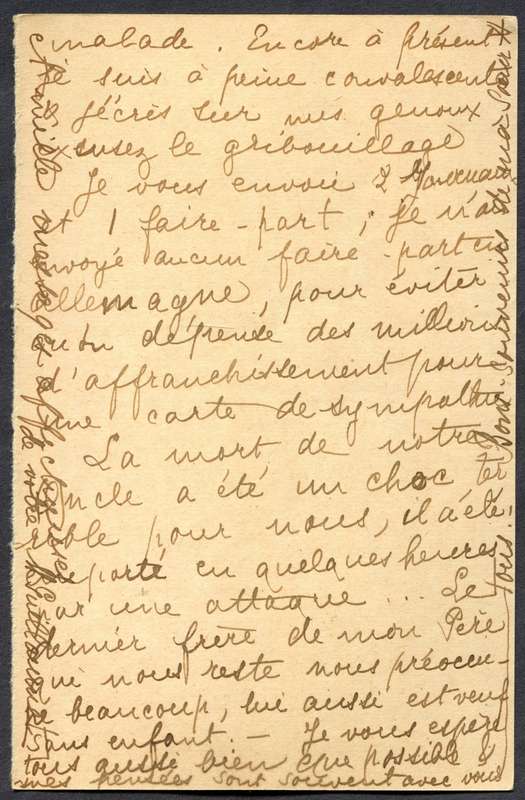 malade. Encore à présent
je suis à peine convalescente
& j'écris sur mes genoux
xcusez le gribouillage
Je vous envoie 2
et 1 faire-part; je n'ai
nvoyé aucun faire-part en
Allemagne, pour éviter
qu'on dépense des millions
d'affranchissement pour
une carte de sympathie
La mort de notre
Oncle a été un choc ter
rible pour nous, il a été
emporté en quelques heures
par une attaque ... Le
dernier frère de mon Père
qui nous reste nous préoccu-
pe beaucoup, lui aussi est veuf
sans enfant. — Je vous espère
tous aussi bien que possible &
mes pensées sont souvent avec vous
tous! Bons souvenirs de ma Sœur
et mille messages affectueux
de votre